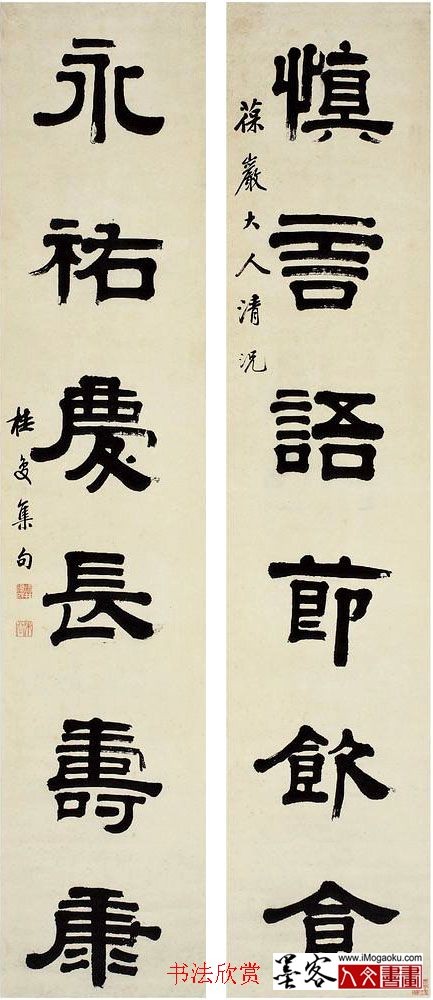 慎言語節飲食
葆巖大人清況
永祐慶長壽康
桂集句
书法欣赏
墨客
www.iMogaoku.com
人文書畫